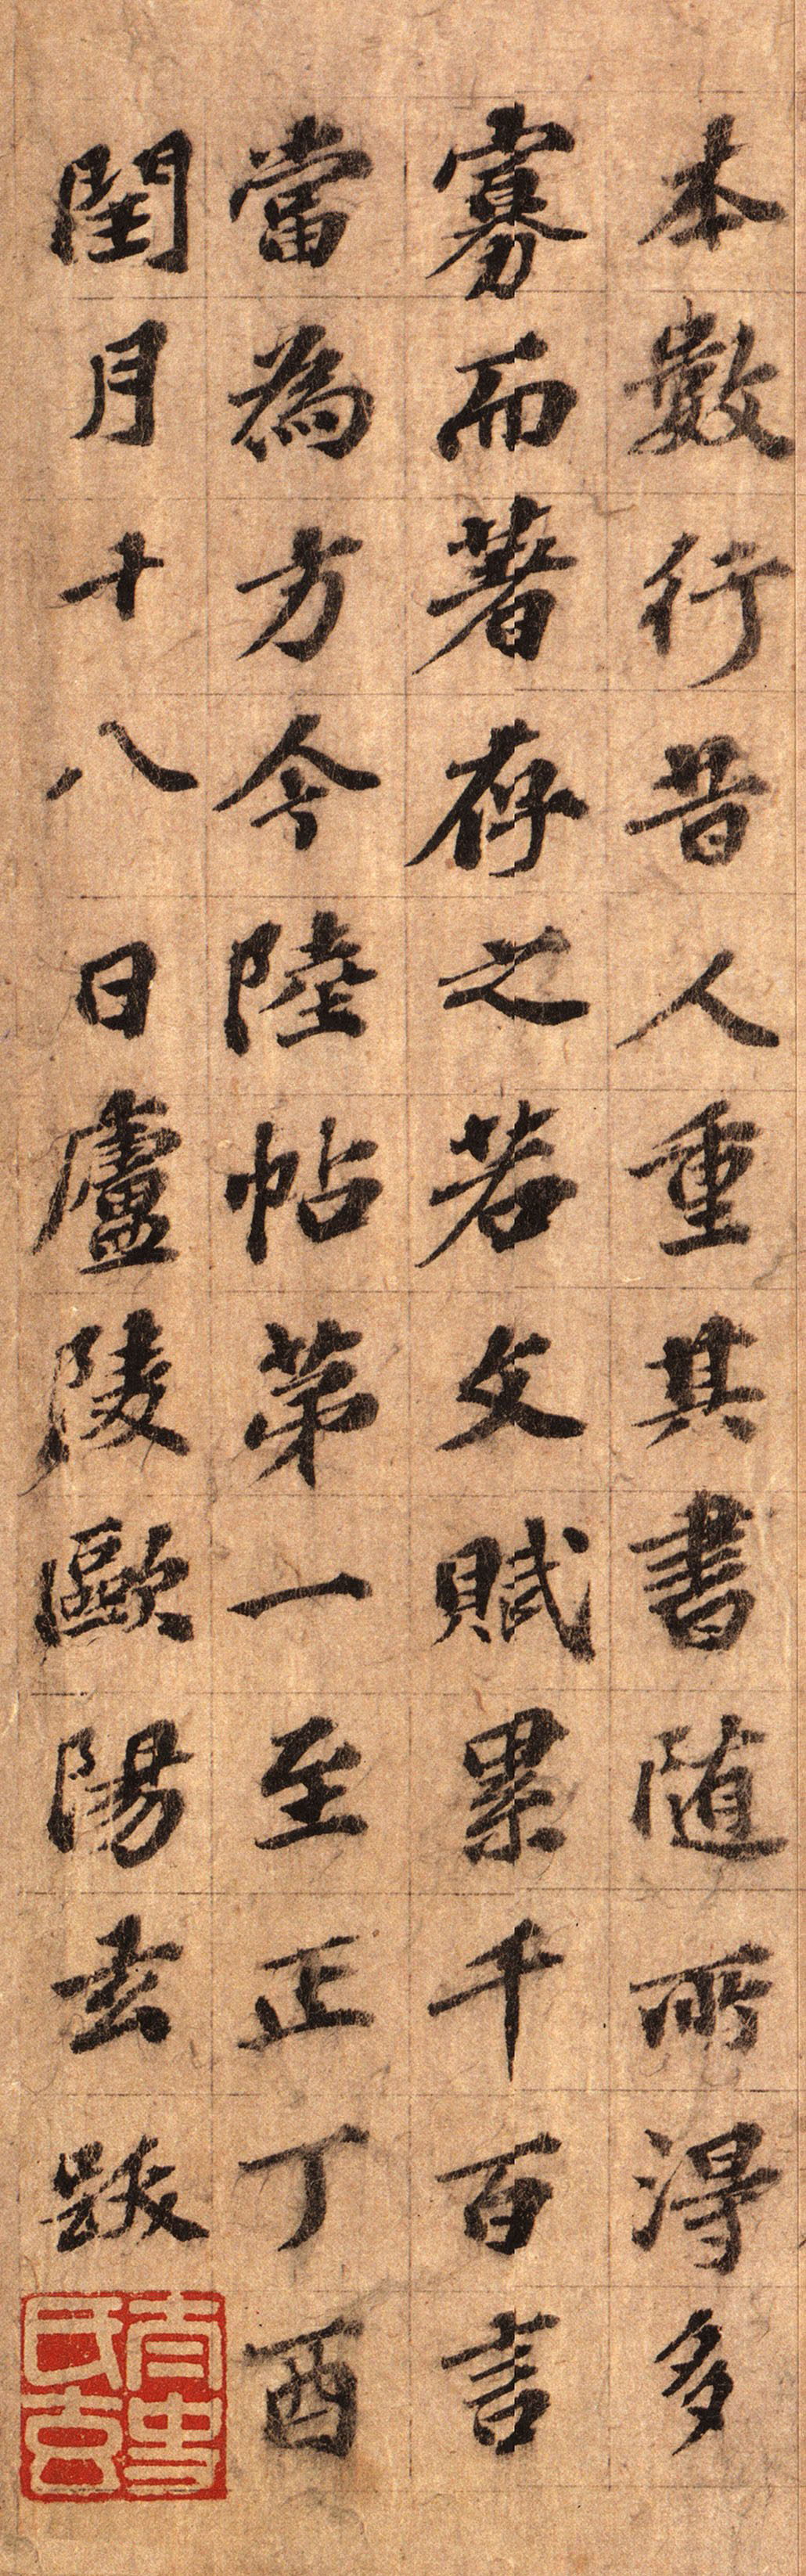 本數行昔人重其書随所得多
寡而著存之若文賦累千百言
當為方今陸帖第一至正丁酉
閏月十八日廬陵歐陽玄跋